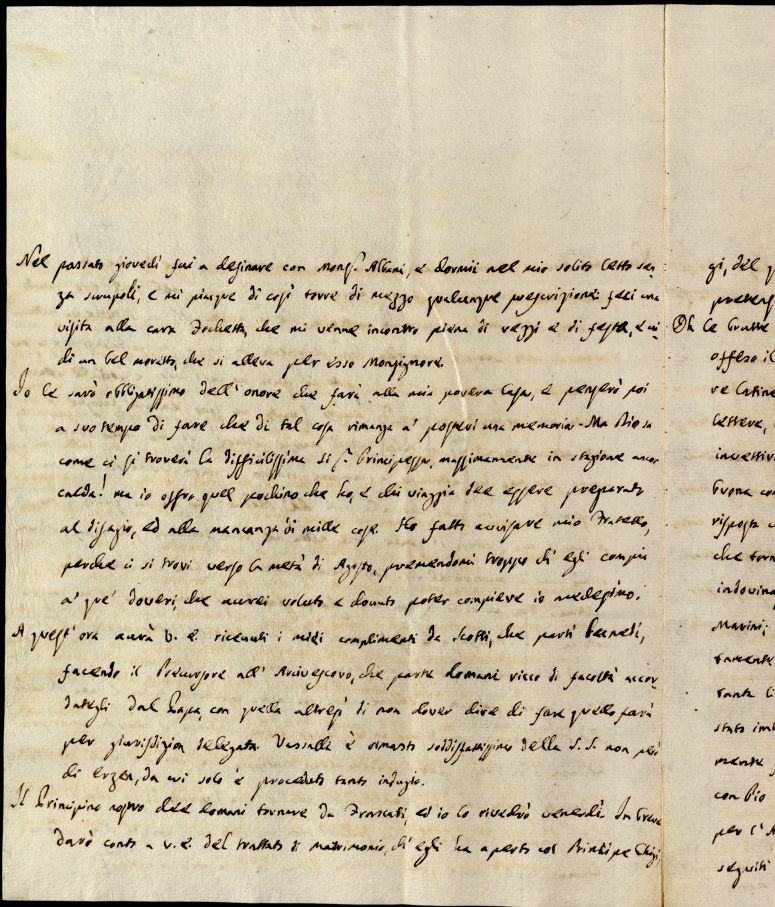 Nel passato giovedì fui a desinare con Mons.r Albani, e dormii nel mio solito letto sen-
za scrupoli, e mi piacque di così torre di mezzo qualunque prescrizione. feci una
visita alla cara Dochetta, che mi venne incontro piena di vezzi e di feste, e vi-
di un bel moretto, che si alleva per esso Monsignore.
Io le sarò obbligatissimo dell' onore che farà alla mia povera Casa, e penserò poi
a suo tempo di fare che di tal cosa rimanga a' posteri una memoria. Ma Dio sa
come ci si troverà la difficilissima Sig.ra Principessa, massimamente in stagione ancor
calda! ma io offro quel pochino che ho, e chi viaggia dee essere preparato
al disagio, ed alla mancanza di mille cose. Ho fatto avvisare mio Fratello,
perché ci si trovi verso la metà di Agosto, premendomi troppo ch' egli compia
a' que' doveri, che avrei voluto e dovuto poter compiere io medesimo.
A quest' ora avrà V. E. ricevuti i miei complimenti da Scotti, che partì
facendo il Precursore all' Arcivescovo, che parte domani ricco di facoltà accor-
dategli dal Papa, con quella altresì di non dover dire di fare quello farà
per giurisdizion delegata. Vassalli è rimasto soddisfattissimo della S. S. non però
di Erzan, da cui solo è proceduto tanto indugio.
Il Principino nostro dee domani tornare da Frascati, ed io lo rivedrò venerdì. In breve
darò conto a V. E. del trattato di matrimonio, ch' egli ha aperto col Principe Chigi,
gi, del
Oh le brutte
offeso il
ve latine
lettere,
invettiv
buona con
risposta
che torn
indovina
Marini;
ramente
tanta li
stato im
mente
con Pio
per l' A
seguiti